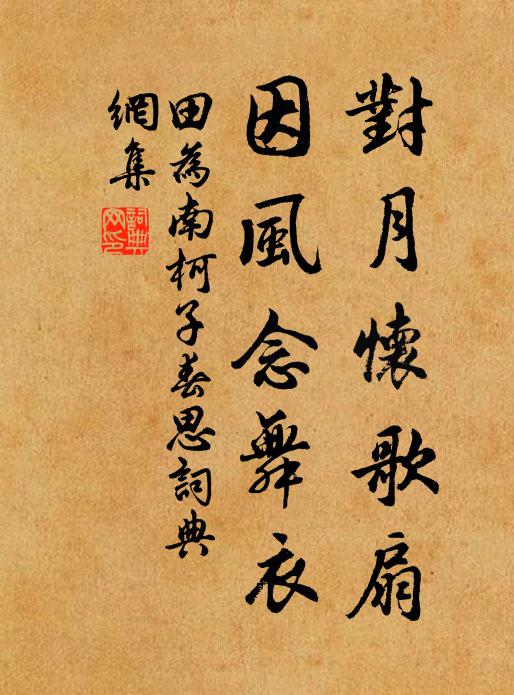 對月懷歌扇
因風念舞衣
田為南柯子春思詞典
網集
詞典
网印